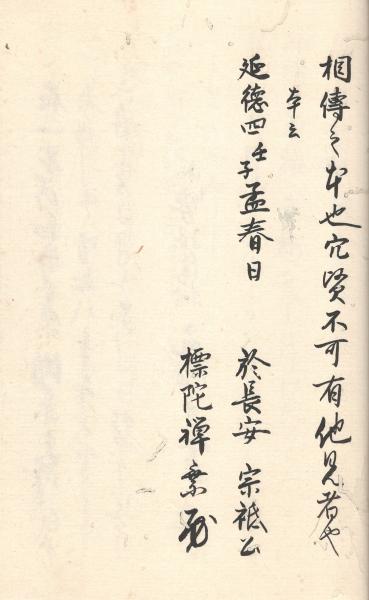 相傳之本也穴賢不可有他見者也
本云
延德四壬子孟春日　於長安　宗祇公
標陀禅